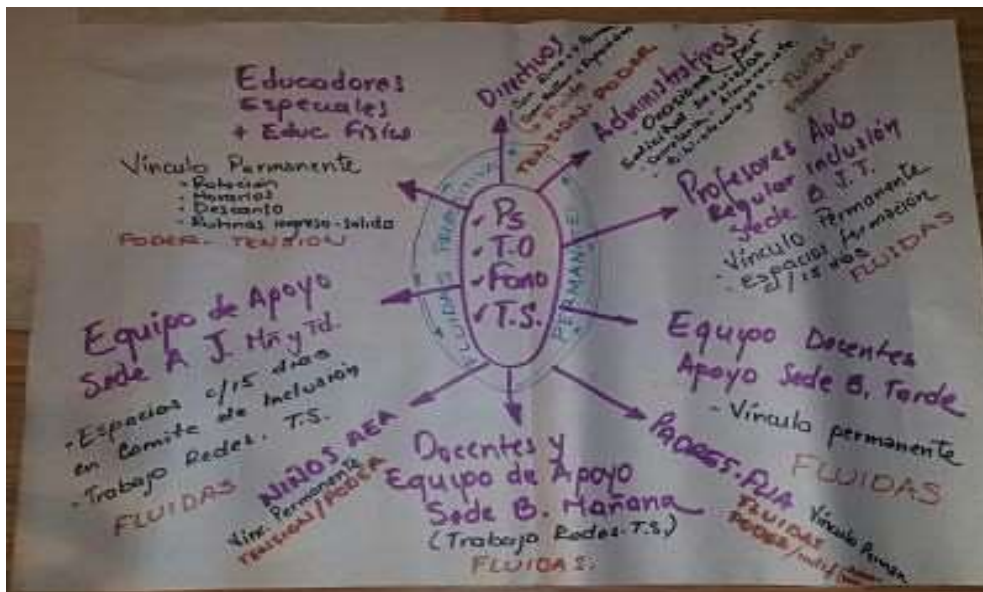 Educadores
Especiales
+ Educ Físico
Vínculo Permanente
- Rotación
- Horarios
- Descanso
- Rutinas ingreso-salida
PODER - TENSION
Directivos
TENSION PODER
Administrativos
- Ocasional por
FLUIDAS
Profesores Aula
Regular inclusión
Sede B J.T.
- Vínculo Permanente
- Espacios formación
c/15 días
FLUIDAS
Equipo Docentes
Apoyo Sede B. Tarde
- Vínculo permanente
FLUIDAS
PADRES-FLIA
Vínculo Perman
FLUIDAS
PODER/
Docentes y
Equipo de Apoyo
Sede B. Mañana
(Trabajo Redes-T.S.)
FLUIDAS.
NIÑOS AEA
Vinc. Permanente
TENSION/PODER
Equipo de Apoyo
Sede A J. Mñ y Td.
- Espacios c/15 días
en Comite de Inclusión
- Trabajo Redes. T.S.
FLUIDAS
✓ Ps
✓ T.O
✓ Fono
✓ T.S.
FLUIDAS
PERMANENTE